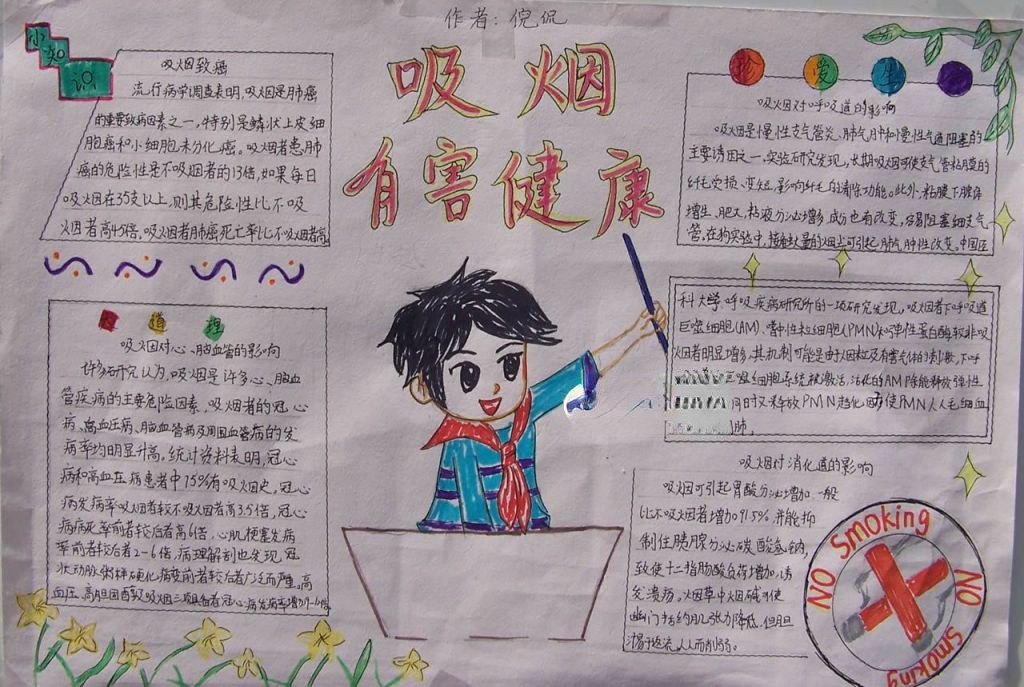 作者：倪侃
吸烟
有害健康
小知识
吸烟致癌
流行病学调查表明，吸烟是肺癌
的重要致病因素之一，特别是鳞状上皮细
胞癌和小细胞未分化癌。吸烟者患肺
癌的危险性是不吸烟者的13倍，如果每日
吸烟在35支以上，则其危险性比不吸
烟者高45倍，吸烟者肺癌死亡率比不吸烟者高
知道理
吸烟对心、脑血管的影响
许多研究认为，吸烟是许多心、脑血
管疾病的主要危险因素，吸烟者的冠心
病、高血压病、脑血管病及周围血管病的发
病率均明显升高。统计资料表明，冠心
病和高血压病患者中75%有吸烟史，冠心
病发病率吸烟者较不吸烟者高3.5倍，冠心
病病死率前者较后者高6倍，心肌梗塞发病
率前者较后者2-6倍，病理解剖也发现，冠
状动脉粥样硬化病变前者较后者广泛而严重。高
血压、高胆固醇及吸烟三项具备者冠心病发病率增加9-
珍爱生
吸烟对呼吸道的影响
吸烟是慢性支气管炎、肺气肿和慢性气道阻塞的
主要诱因之一。实验研究发现，长期吸烟可使支气管粘膜的
纤毛受损、变短，影响纤毛的清除功能。此外，粘膜下腺体
增生、肥大，粘液分泌增多，成分也有改变，容易阻塞细支气
管。在狗实验中，接触大量的烟尘可引起肺气肿性改变。中国医
科大学呼吸疾病研究所的一项研究发现，吸烟者下呼吸道
巨噬细胞(AM)、嗜中性粒细胞(PMN)和弹性蛋白酶较非吸
烟者明显增多，其机制可能是由于烟粒及有害气体的刺激，下呼
巨噬细胞系统被激活，活化的AM除能释放弹性
同时又释放PMN趋化因子使PMN从毛细血
肺。
吸烟对消化道的影响
吸烟可引起胃酸分泌增加，一般
比不吸烟者增加91.5%，并能抑
制住胰腺分泌碳酸氢钠，
致使十二指肠酸负荷增加，诱
发溃疡。烟草中烟碱可使
幽门括约肌张力降低，但胆
汁易于返流，从而削弱。
NO Smoking
NO Smoking